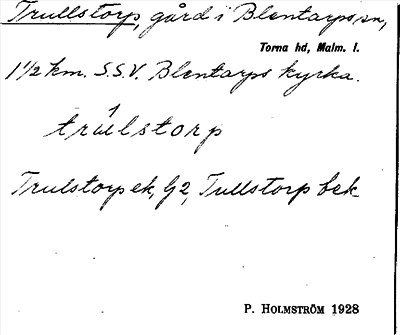 Trullstorp, gård i Blentarps sn,
Torna hd, Malm. l.
1 1/2 km. S.S.V. Blentarps kyrka.
trúlstorp
Trulstorp ek, G2, Tullstorp bek
P. HOLMSTRÖM 1928